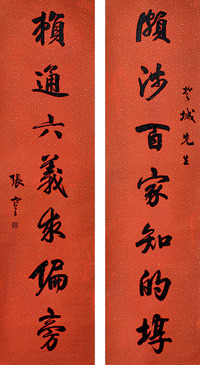 涉百家知的埻
城先生
賴通六義求偏旁
張謇